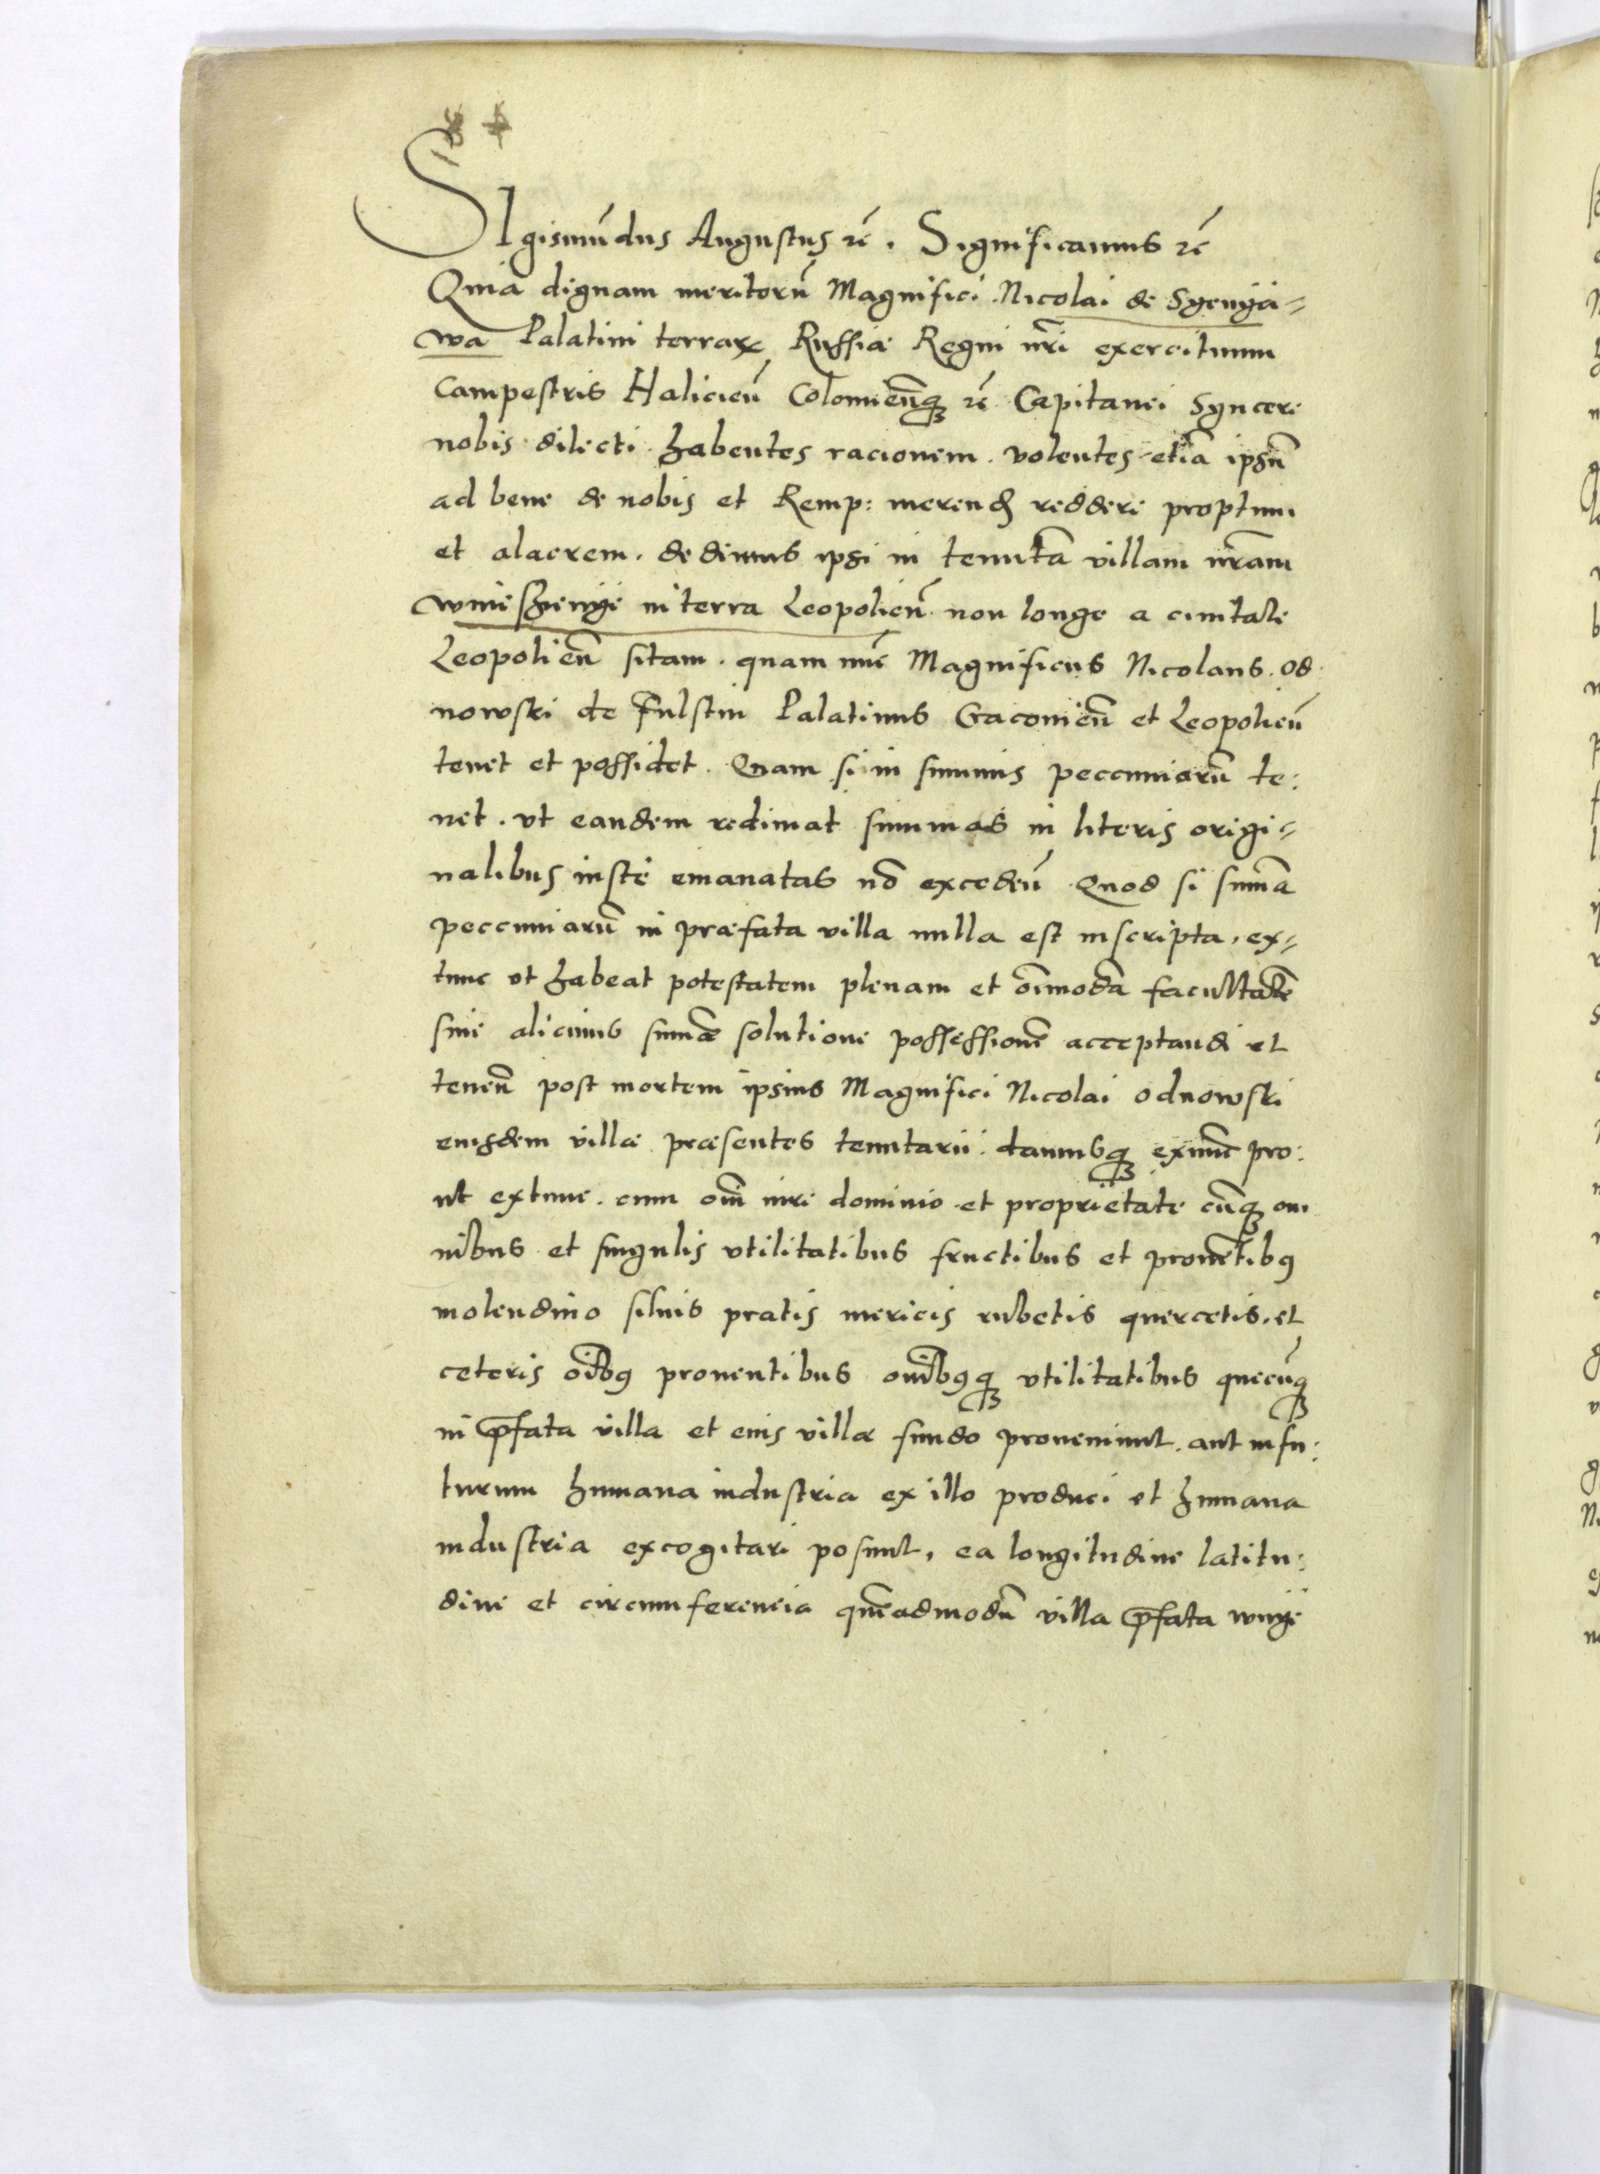 SIgismūdus Augustus rc̄. Significamus rc̄
Quia dignam meritorū Magnifici Nicolai de Syenya=
wa Palatini terraꝝ Russiæ Regni nr̄i exercituum
Campestris Halicieñ Colomieñqꝫ rc̄ Capitanei Syncere
nobis dilecti habentes racionem. volentes etiā ipsū
ad bene de nobis et Remp: merend reddere proptum
et alacrem. dedimus ipsi in tenutā villam nr̄am
in terra Leopolieñ non longe a ciuitate
Leopolieñ sitam. quam nūc Magnificus Nicolaus. Od
nowski de Fulstin Palatinus Cracouieñ et Leopolieñ
tenet et possidet. Quam si in summis peccuniarū te:
net. vt eandem redimat summas in literis origi=
nalibus iuste emanatas nō excedeñ Quod si sum̄a
peccuniarū in præfata villa nulla est inscripta, ex=
tunc vt habeat potestatem plenam et om̄imodā facultatē
sine alicuius sum̄æ solutione possessionē acceptandi et
teneñ post mortem ipsius Magnifici Nicolai Odnowski
eiusdem villæ præsentes tenutarii. damusqꝫ exnūc pro:
ut extunc. cum om̄i iure dominio et proprietate cūqꝫ om
nibus et singulis vtilitatibus fructibus et prouētibꝯ
molendino siluis pratis mericis rubetis quercetis. et
ceteris oībꝯ prouentibus om̄ibꝯqꝫ vtilitatibus quecūqꝫ
in p̄fata villa et eius villæ fundo proueniunt. aut in fu:
turum humana industria ex illo produci et humana
industria excogitari posunt, ea longitudine latitu:
dine et circumferencia quēadmodū villa p̄fata